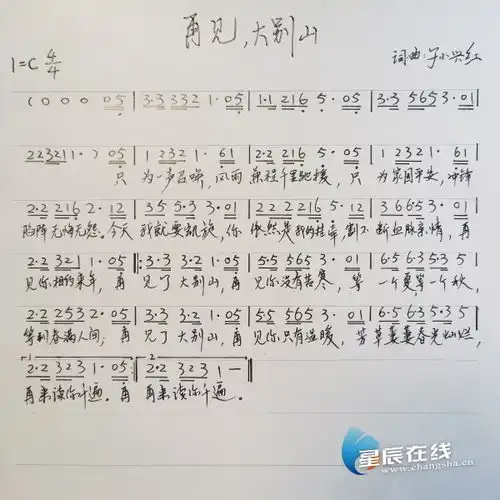 再见,大别山
1=C 4/4
词曲:于小兴红
(0 0 0 05 | 3·3 332 1·05 | 1·1 216 5·05 | 3·3 565 3·01 |
223211·) 05 | 1 232 1·61 | 2·2 216 5·05 | 1 232 1·61 |
只 为一声召唤,风雨 兼程千里驰援,只 为家国平安,冲锋
2·2 216 2·12 | 35 5·3 3·01 | 22 2 216 5·12 | 3665 3·01 |
陷阵无悔无怨。今天 我就要凯旋,你 依然是我的牵牵,割不 断血脉亲情,再
2·2 321 1·05 | 3·3 3·2 1·05 | 5·5 565 3·01 | 6·5 6·3 5·35 |
见你相约来年,再 见了大别山,再 见你没有苦寒,等 一个夏等一个秋,
2·2 253 2·05 | 3·3 3·2 1·05 | 5·5 565 3·01 | 6·5 6·3 5·3 5 |
等到春满人间,再 见了大别山,再 见你只有温暖,芳草萋萋春光灿烂,
1 2·2 323 1·05 :| 2 2·2 323 1 — |
再来读你千遍。再 再来读你千遍。
星辰在线
www.changsha.cn